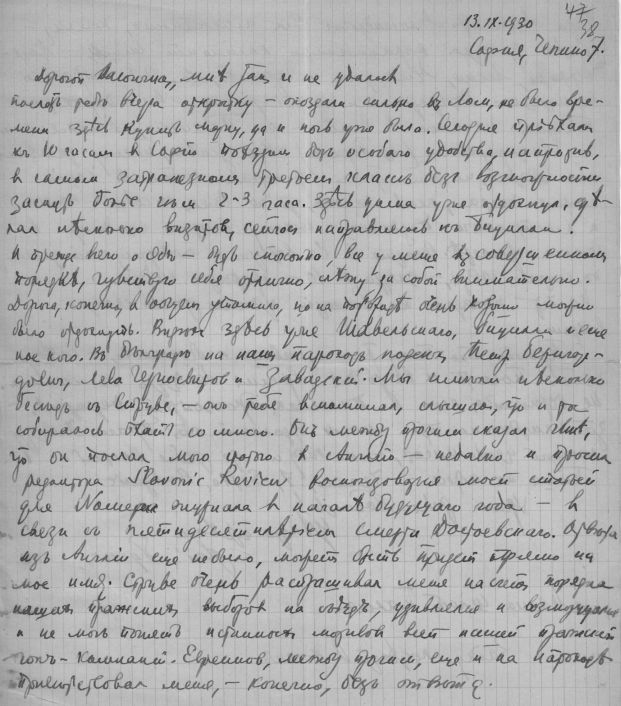 47
38
13.IX.1930
София, Чепино 7.
Дорогой Васенька, мне так и не удалось
послать тебѣ вчера открытку – опоздали сильно въ Лом, не было вре-
мени здѣсь купить марку, да и ночь уже была. Сегодня приѣхали
къ 10 часам в Софію поѣздом безъ особаго удобства, напротив,
в самом затрапезном третьем классѣ безъ возможности
заснуть болѣе чѣм 2-3 часа. Здѣсь уже отдохнул, сдѣ-
лал нѣсколько визитов, сейчас направляюсь къ Бицилли.
И прежде всего о себѣ – будь спокойна, все у меня въ совершенном
порядкѣ, чувствую себя отлично, слѣжу за собой внимательно.
Дорога, конечно, в общем утомила, но на пароходѣ очень хорошо можно
было отдохнуть. Видѣл здѣсь уже Шавельскаго, Бицилли и еще
кое кого. Въ Бѣлградѣ на наш пароход Петр Бернгар-
дович, Лева Черносвитов и Завадский. Мы имѣли нѣсколько
бесѣдъ съ Струве, – он тебя вспоминал, слышал, что и ты
собиралась ѣхать со мною. Онъ между прочим сказал мнѣ,
что он послал мою в Англію – недавно и просил
редактора Slavonic Review моей статьей
для журнала в началѣ будущаго года – в
связи съ пятидесятилѣтіем смерти Достоевскаго. Отвѣта
изъ Англіи еще не было, может быть придет прямо на
мое имя. Струве очень распрашивал меня насчет порядка
наших пражских выборов на съѣздъ, удивлялся и возмущался
и не мог понять истинных мотивов всей нашей пражской
кампаніи. Евреинов, между прочим, еще и на пароходѣ
привѣтствовал меня, – конечно, безъ отвѣта.